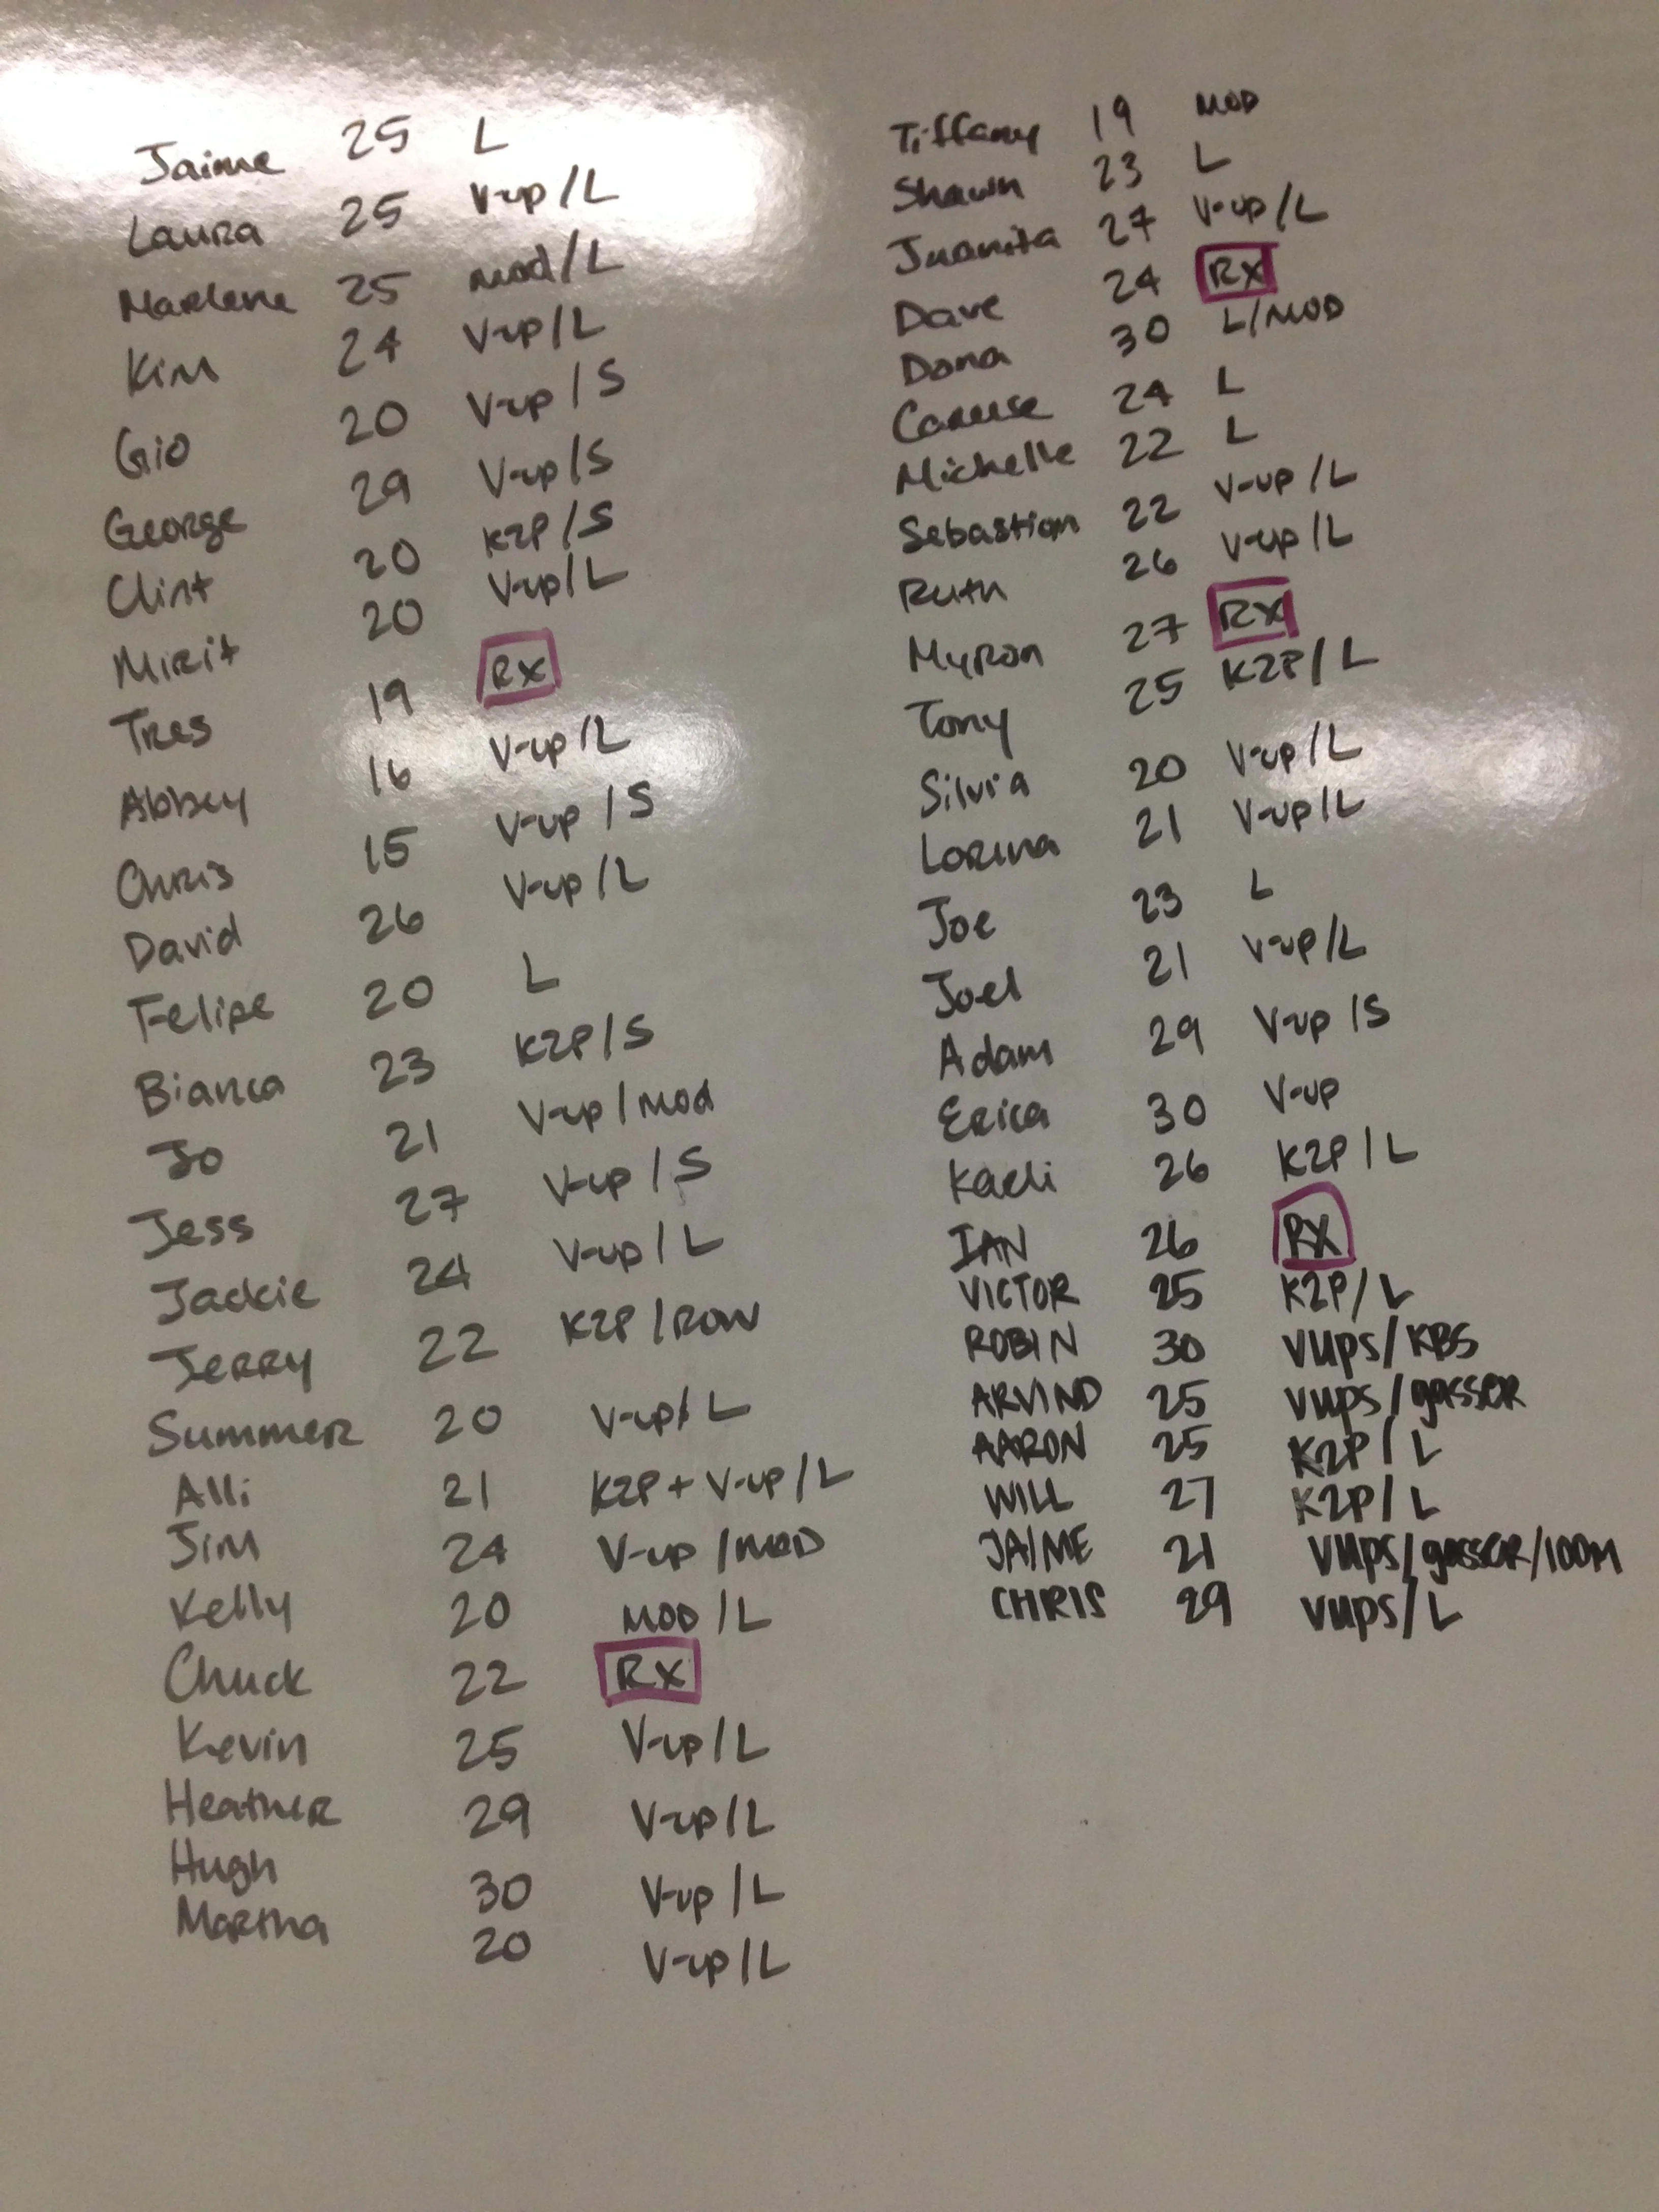 Jaime 25 L
Laura 25 V-up/L
Marlene 25 mod/L
Kim 24 V-up/L
Gio 20 V-up/S
George 29 V-up/S
Clint 20 K2P/S
Mirit 20 V-up/L
Tres 19 RX
Abbey 16 V-up/L
Chris 15 V-up/S
David 26 V-up/L
Felipe 20 L
Bianca 23 K2P/S
Jo 21 V-up/mod
Jess 27 V-up/S
Jackie 24 V-up/L
Jerry 22 K2P/ROW
Summer 20 V-up/L
Alli 21 K2P+V-up/L
Jim 24 V-up/MOD
Kelly 20 MOD/L
Chuck 22 RX
Kevin 25 V-up/L
Heather 29 V-up/L
Hugh 30 V-up/L
Martha 20 V-up/L
Tiffany 19 MOD
Shawn 23 L
Juanita 27 V-up/L
Dave 24 RX
Dana 30 L/MOD
24 L
Michelle 22 L
Sebastian 22 V-up/L
Ruth 26 V-up/L
Myron 27 RX
Tony 25 K2P/L
Silvia 20 V-up/L
Lorena 21 V-up/L
Joe 23 L
Joel 21 V-up/L
Adam 29 V-up/S
Erica 30 V-up
Kaeli 26 K2P/L
IAN 26 RX
VICTOR 25 K2P/L
ROBIN 30 VUPS/KBS
ARVIND 25 VUPS/gasser
AARON 25 K2P/L
WILL 27 K2P/L
JAIME 21 VUPS/gasser/100M
CHRIS 29 VUPS/L